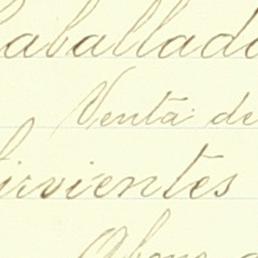 Caballad
Venta de
Sirvientes
Abono